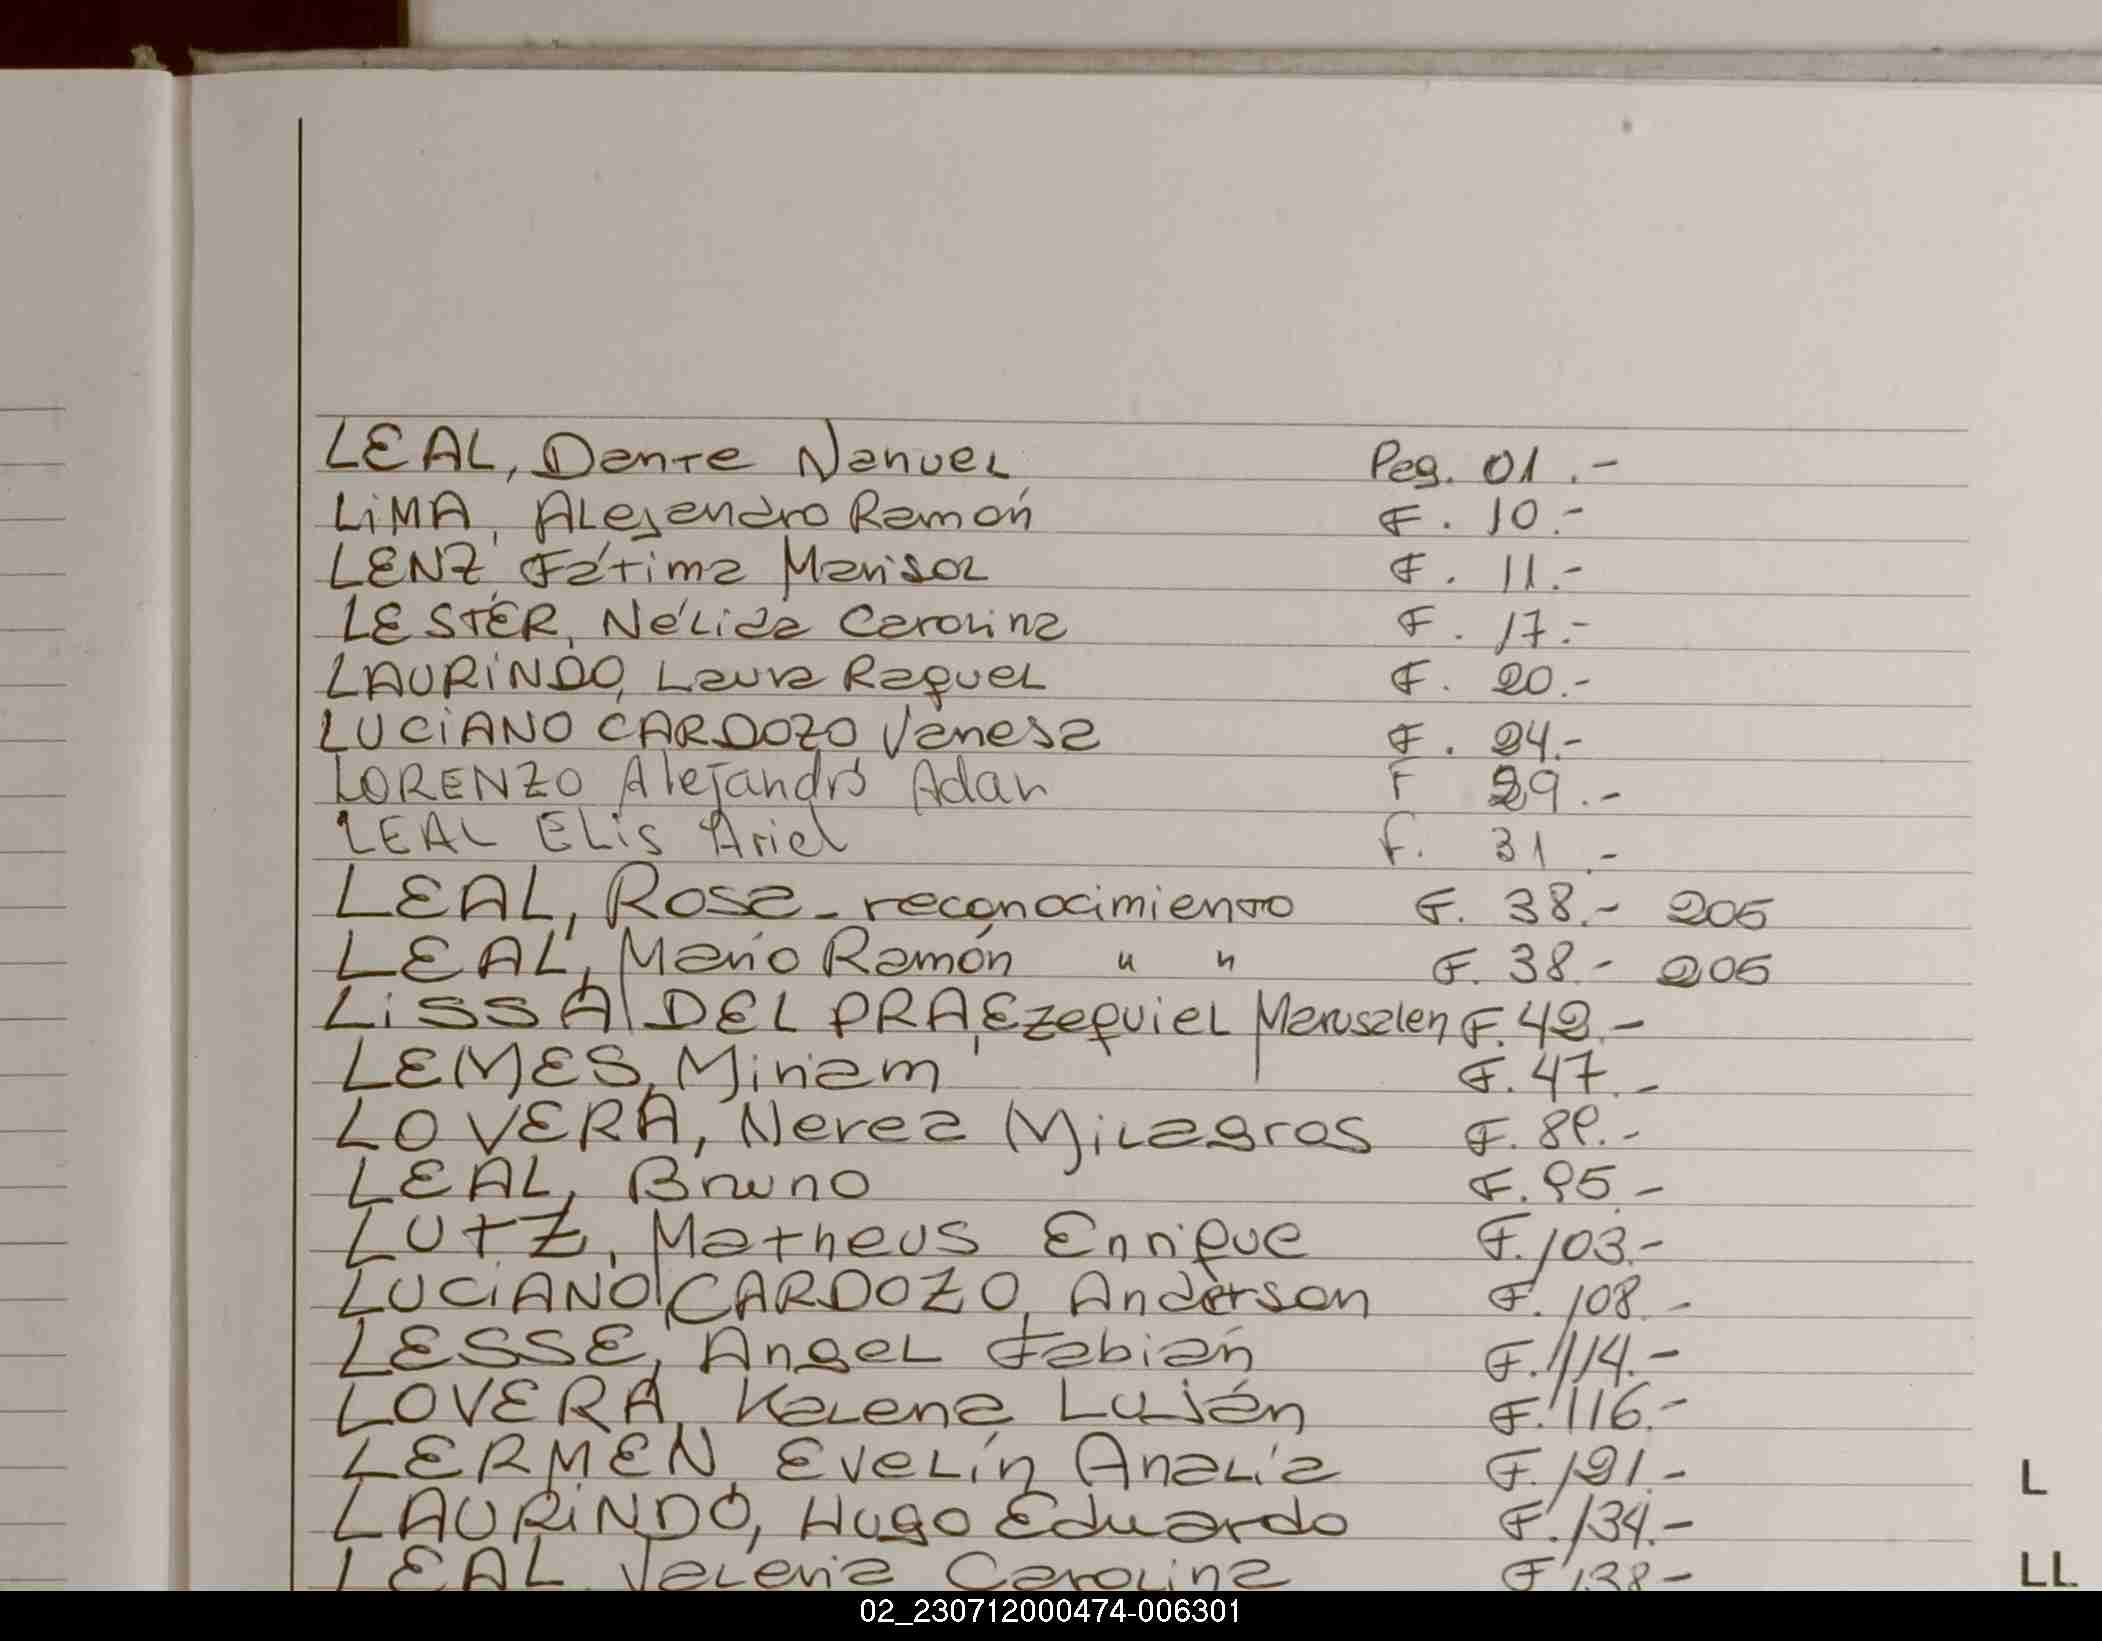 LEAL, Dante Nanuel Pag. 01.-
LiMA, ALejandro Ramón F. 10.-
LENZ, Fátima Marisol F. 11.-
LESTER, NéLida Carolina F. 17.-
LAURiNDO, Laura Raquel F. 20.-
LUCiANO CARDOZO Vanesa F. 24.-
LORENZO Alejandro Adan F 29.-
LEAL ELis Ariel F. 31.-
LEAL, Rosa - reconocimiento F. 38.- 205
LEAL, Mario Ramón " " F. 38.- 205
LiSSA DEL PRA, Ezequiel Marusalen F. 42.-
LEMES, Miriam F. 47.-
LOVERA, Nerea Milagros F. 89.-
LEAL, Bruno F. 95.-
LUTZ, Matheus Enrique F. 103.-
LUCiANO CARDOZO, Anderson F. 108.-
LESSE, Angel Fabián F. 114.-
LOVERA, Kalena Luján F. 116.-
LERMEN, Evelín Analía F. 121.-
LAURiNDO, Hugo Eduardo F. 134.-
LEAL Valeria Carolina F 138-
L
LL
02_230712000474-006301